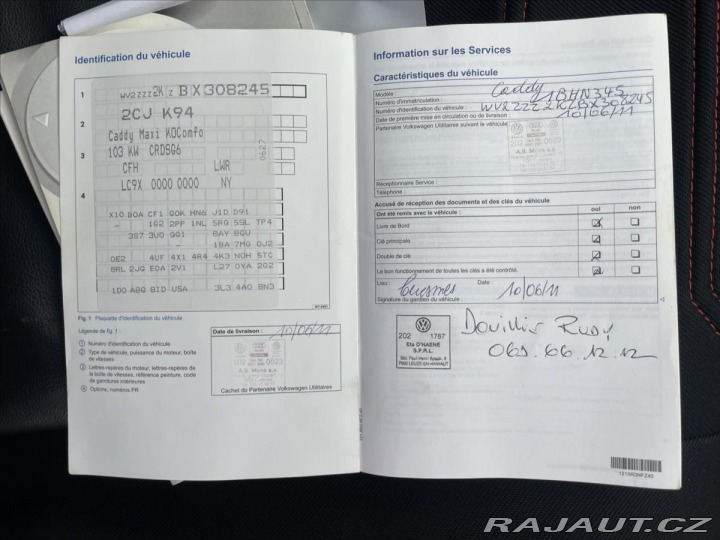 Identification du véhicule
1
WV2ZZZ2KZBX308245
2CJ K94
2
Caddy Maxi KOComfo
3
103 KW CRDSG6
0627
CFH LWR
LC9X 0000 0000 NY
4
X10 B0A CF1 Q0K HN6 J1D D91
- 1G2 2PF 1NL 5RG 5SL TP4
3S7 3U0 GG1 8AY 8GU
1BA 7MG 0J2
0E2 4UF 4X1 4R4 4K3 N0H 5TC
8RL 2JQ EDA 2V1 L27 0YA 2G2
1D0 A8Q BID USA 3L3 4A0 BN3
Fig. 1 Plaquette d'identification du véhicule
Légende de fig. 1 :
① Numéro d'identification du véhicule
② Type de véhicule, puissance du moteur, boîte de vitesses
③ Lettres-repères du moteur, lettres-repères de la boîte de vitesses, référence peinture, code de garnitures intérieures
④ Options, numéros PR
Date de livraison : 10/06/11
Cachet du Partenaire Volkswagen Utilitaires
Information sur les Services
Caractéristiques du véhicule
Modèle : Caddy
Numéro d'immatriculation : 1BHN345
Numéro d'identification du véhicule : WV2ZZZ2KZBX308245
Date de première mise en circulation ou de livraison : 10/06/11
Partenaire Volkswagen Utilitaires suivant le véhicule :
202 0623
Réceptionnaire Service :
Téléphone :
Accusé de réception des documents et des clés du véhicule
Ont été remis avec le véhicule : oui non
Livre de Bord
Clé principale
Double de clé
Le bon fonctionnement de toutes les clés a été contrôlé.
Lieu : Date : 10/06/11
Signature du gardien du véhicule
202 1767
Ets D'HAENE
S.P.R.L.
7900 LEUZE-EN-HAINAUT
069.66.12.12
RAJAUT.CZ